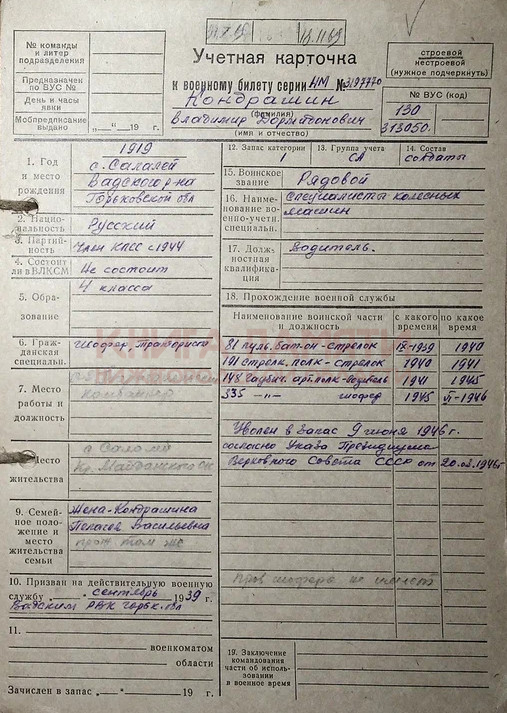 18.11.69
№ команды
и литер
подразделения
Предназначен
по ВУС №
День и часы
явки
Мобпредписание
выдано „ — “ 19 г.
Учетная карточка
к военному билету серии НМ №
Кондрашин
(фамилия)
Владимир
(имя и отчество)
строевой
нестроевой
(нужное подчеркнуть)
№ ВУС (код)
130
313050.
1. Год
и место
рождения
1919
с. Салалей
Вадского р-на
Горьковской обл
2. Нацио-
нальность
Русский
3. Партий-
ность
Член КПСС с 1944
4. Состоит
ли в ВЛКСМ
Не состоит
5. Обра-
зование
4 класса
6. Граж-
данская
специальн.
Шофер,
7. Место
работы и
должность
Место
жительства
с Салалей
9. Семей-
ное поло-
жение и
место
жительства
семьи
Жена - Кондрашина
Пелагея Васильевна
прож. там же
10. Призван на действительную военную
службу . сентябрь 1939 г.
Вадским РВК Горьк. обл
11.
военкоматом
области
Зачислен в запас „ “ 19 г.
12. Запас категории
1
13. Группа учета
СА
14. Состав
солдаты
15. Воинское
звание
Рядовой
16. Наиме-
нование во-
енно-учетн.
специальн.
Специалисты колесных
машин
17. Долж-
ностная
квалифика-
ция
Водитель.
18. Прохождение военной службы
Наименование воинской части
и должность
с какого
времени
по какое
время
81 пуль. бат-он - стрелок IX-1939 1940
141 стрелк. полк - стрелок 1940 1941
148 гаубич. арт. полк - водитель 1941 1945
335 — „ — шофер 1945 VI-1946
Уволен в запас 9 июня 1946 г.
согласно Указа Президиума
Верховного Совета СССР от 20.03.1946г
Прав шофера не имеет
19. Заключение
командования
части об исполь-
зовании
в военное время
КНИГА ПАМЯТИ